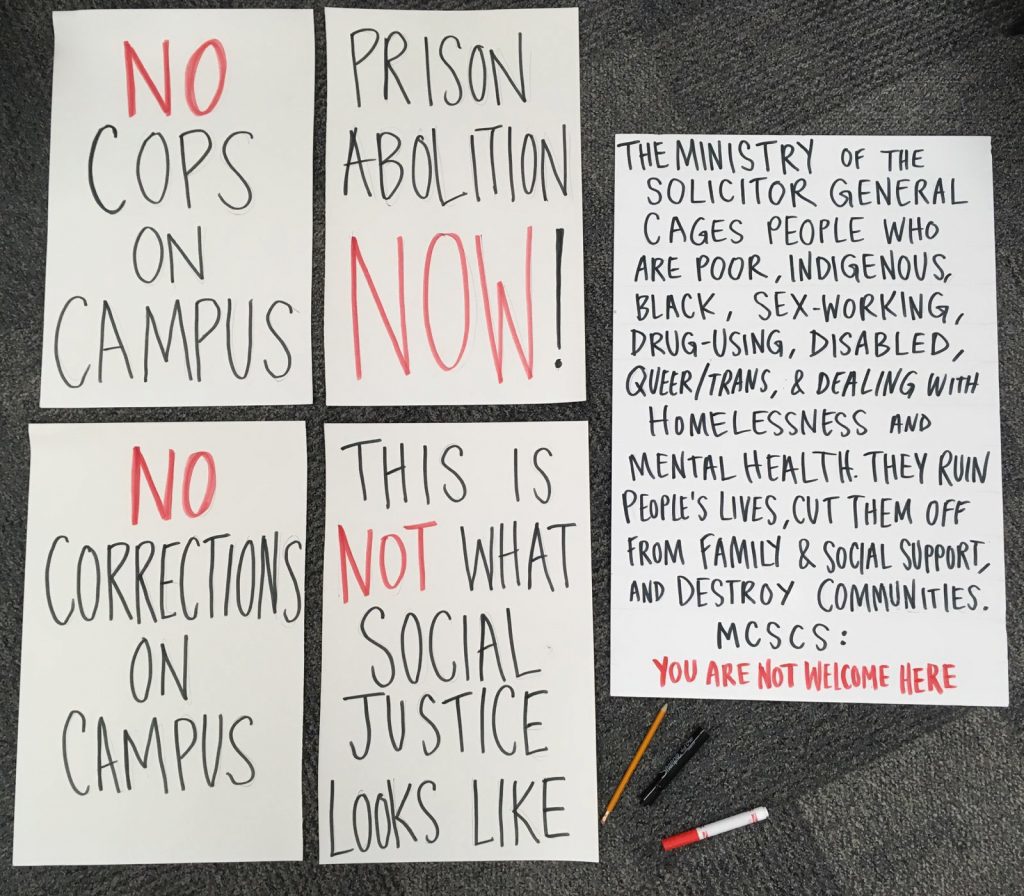 NO
COPS
ON
CAMPUS
PRISON
ABOLITION
NOW!
NO
CORRECTIONS
ON
CAMPUS
THIS IS
NOT WHAT
SOCIAL
JUSTICE
LOOKS LIKE
THE MINISTRY OF THE
SOLICITOR GENERAL
CAGES PEOPLE WHO
ARE POOR, INDIGENOUS,
BLACK, SEX-WORKING,
DRUG-USING, DISABLED,
QUEER/TRANS, & DEALING WITH
HOMELESSNESS AND
MENTAL HEALTH. THEY RUIN
PEOPLE'S LIVES, CUT THEM OFF
FROM FAMILY & SOCIAL SUPPORT,
AND DESTROY COMMUNITIES.
MCSCS:
YOU ARE NOT WELCOME HERE